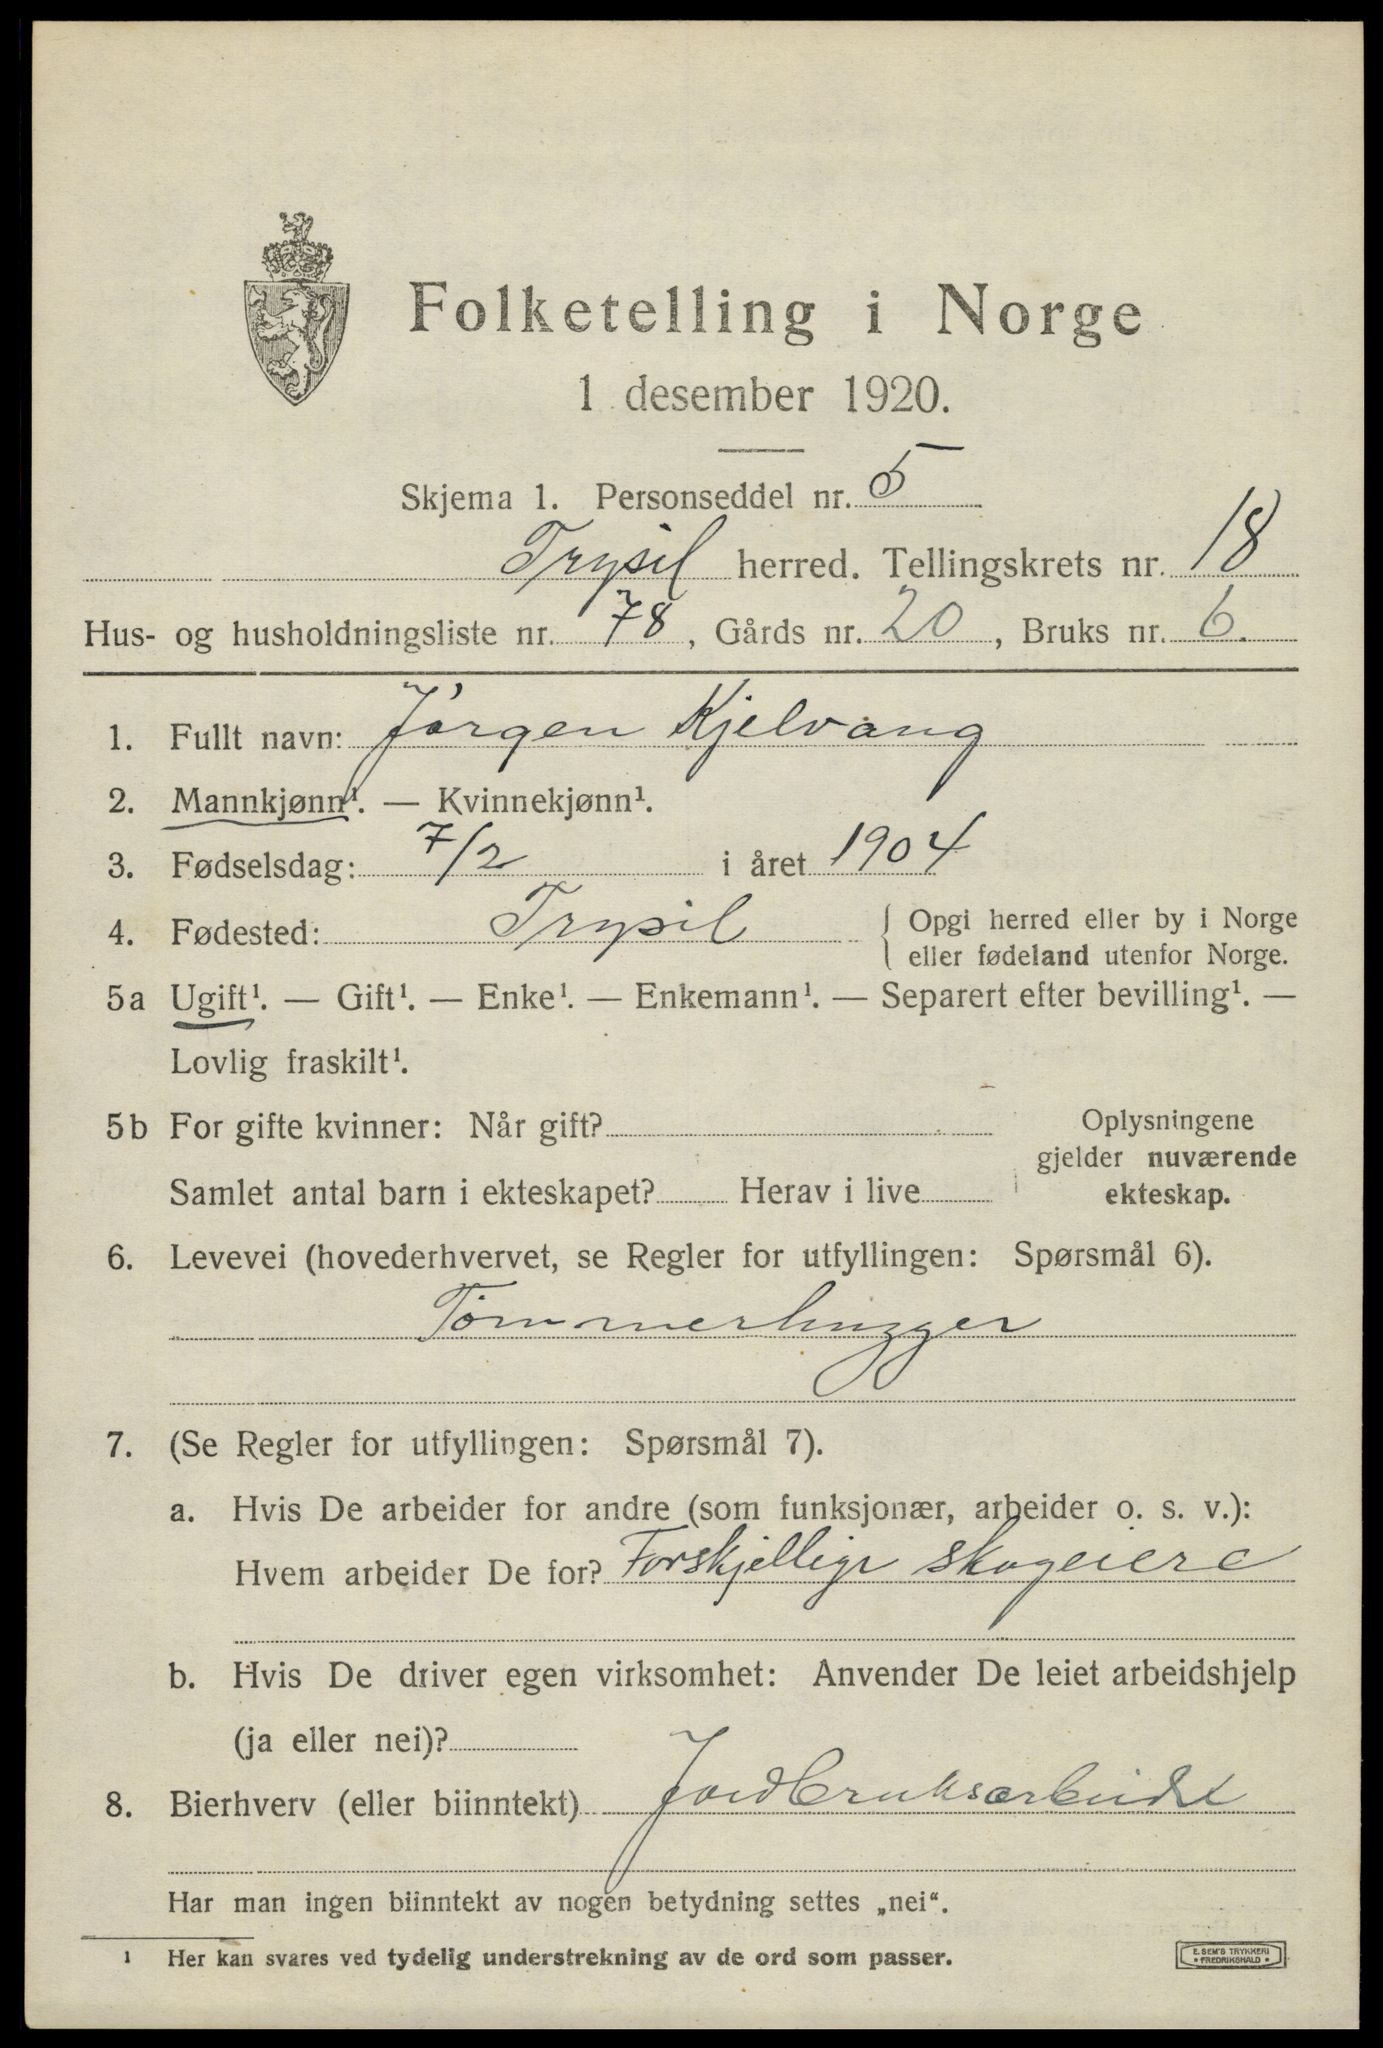 Folketelling i Norge
1 desember 1920.
Skjema 1. Personseddel nr. 5
Trysil herred. Tellingskrets nr. 18
Hus- og husholdningsliste nr. 78, Gårds nr. 20, Bruks nr. 6.
1. Fullt navn: Jørgen Kjelvang
2. Mannkjønn¹. — Kvinnekjønn¹.
3. Fødselsdag: 7/2 i året 1904
4. Fødested: Trysil { Opgi herred eller by i Norge
eller fødeland utenfor Norge.
5a Ugift¹. — Gift¹. — Enke¹. — Enkemann¹. — Separert efter bevilling¹. —
Lovlig fraskilt¹.
5b For gifte kvinner: Når gift?
Samlet antal barn i ekteskapet? Herav i live
Oplysningene
gjelder nuværende
ekteskap.
6. Levevei (hovederhvervet, se Regler for utfyllingen: Spørsmål 6).
Tømmerhugger
7. (Se Regler for utfyllingen: Spørsmål 7).
a. Hvis De arbeider for andre (som funksjonær, arbeider o. s. v.):
Hvem arbeider De for? Forskjellige skogeiere
b. Hvis De driver egen virksomhet: Anvender De leiet arbeidshjelp
(ja eller nei)?
8. Bierhverv (eller biinntekt) Jordbruksarbeide
Har man ingen biinntekt av nogen betydning settes „nei“.
¹ Her kan svares ved tydelig understrekning av de ord som passer.
E. SEM'S TRYKKERI
• FREDRIKSHALD •